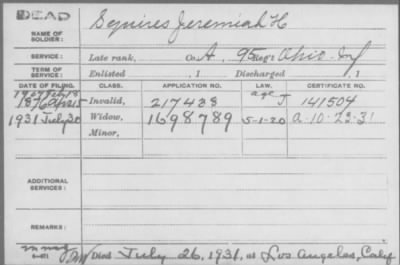 DEAD
NAME OF SOLDIER: Squires Jeremiah H
SERVICE: Late rank, Co. A, 95 Reg't Ohio Inf
TERM OF SERVICE: Enlisted , 1 Discharged , 1
DATE OF FILING. CLASS. APPLICATION NO. LAW. CERTIFICATE NO.
1907 Feb 18 age
1876 Apr 15 Invalid, 217428 J 141504
1931 July 30 Widow, 1698789 5-1-20 A-10-23-31
Minor,
ADDITIONAL SERVICES:
REMARKS:
Died July 26, 1931, at Los Angeles, Calif